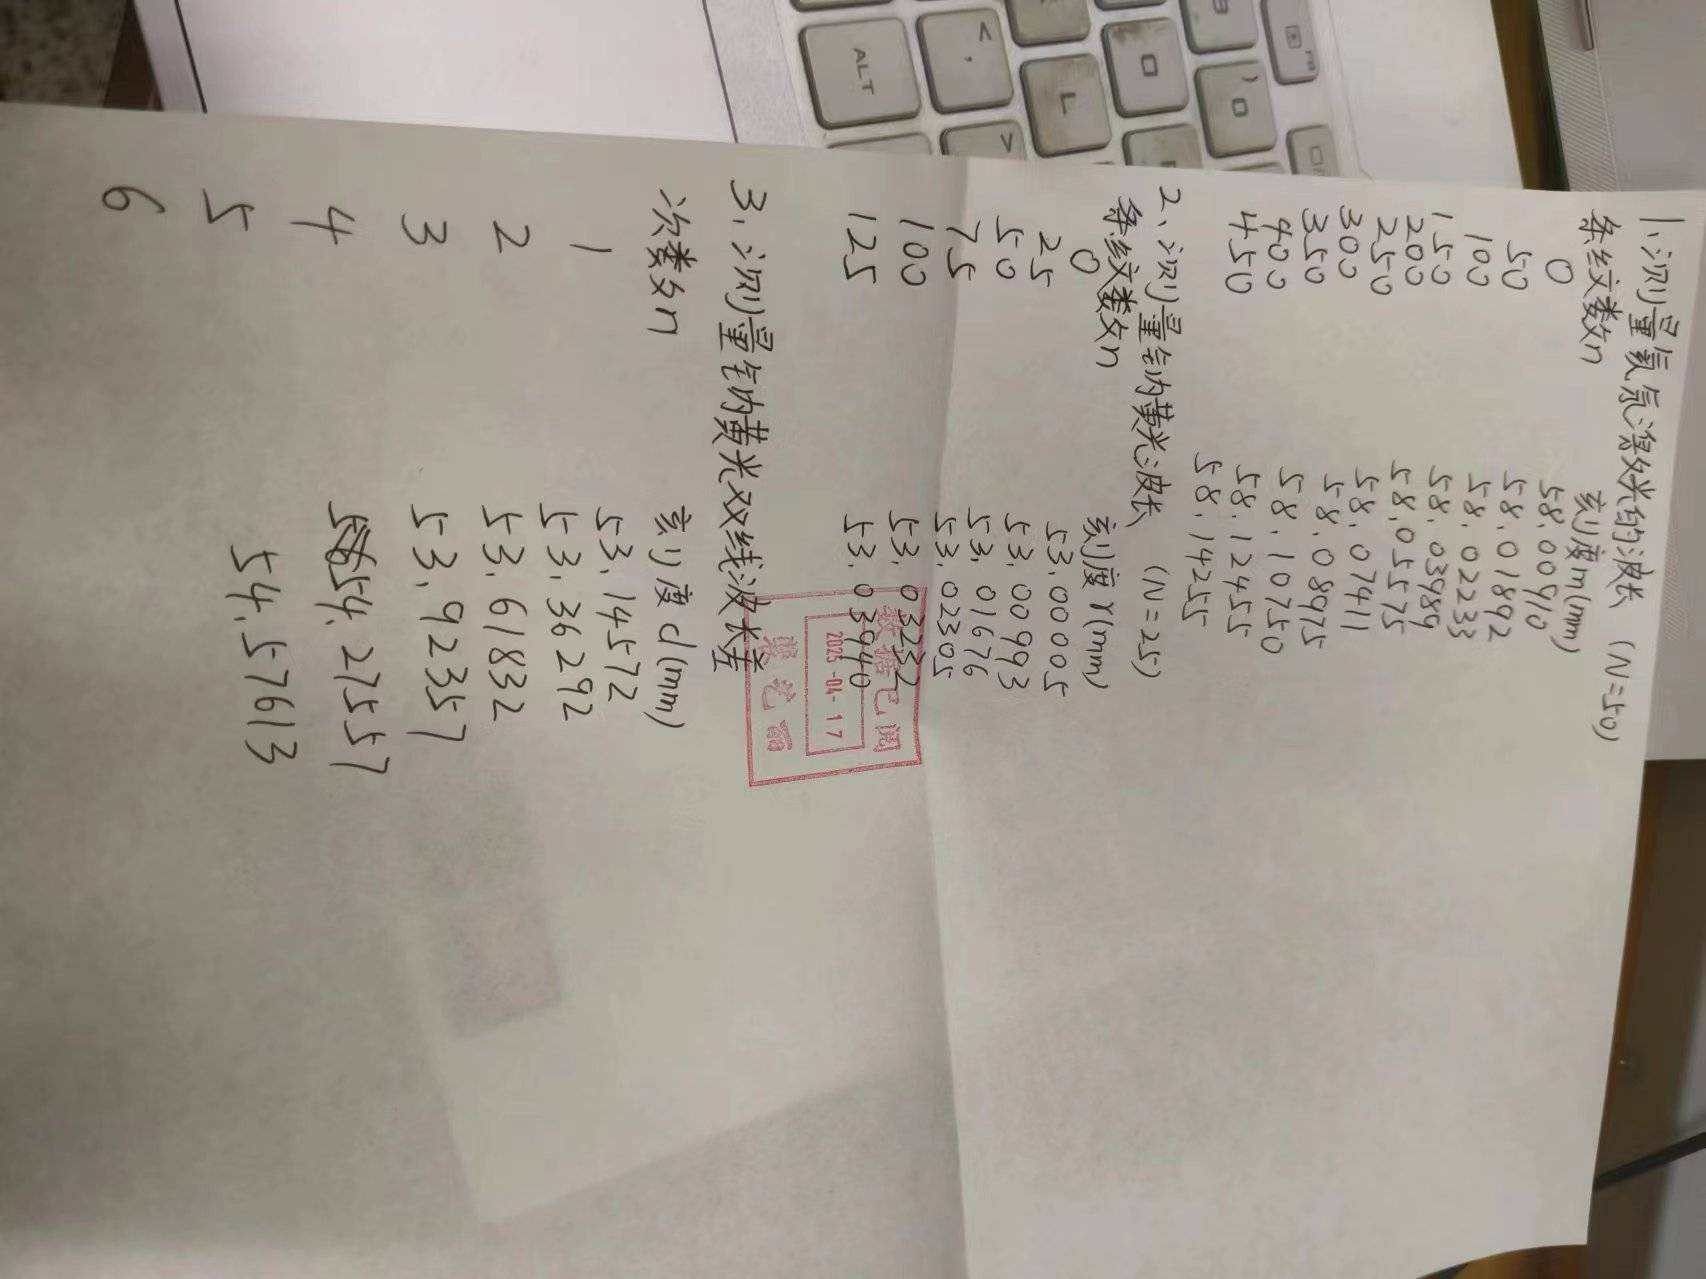 1.测量氦氖激光的波长 (N=50)
条纹数n 刻度m(mm)
0 58.00910
50 58.01892
100 58.02233
150 58.03989
200 58.05575
250 58.07411
300 58.08975
350 58.10750
400 58.12455
450 58.14255
2、测量钠黄光波长 (N=25)
条纹数n 刻度r(mm)
0 53.00005
25 53.00993
50 53.01676
75 53.02305
100 53.03232
125 53.03940
数据已阅
2025-04-17
3、测量钠黄光双线波长差
次数n 刻度d(mm)
1 53.14572
2 53.36292
3 53.61832
4 53.92357
5 54.27557
6 54.57613
ALT
<
,
>
L
O